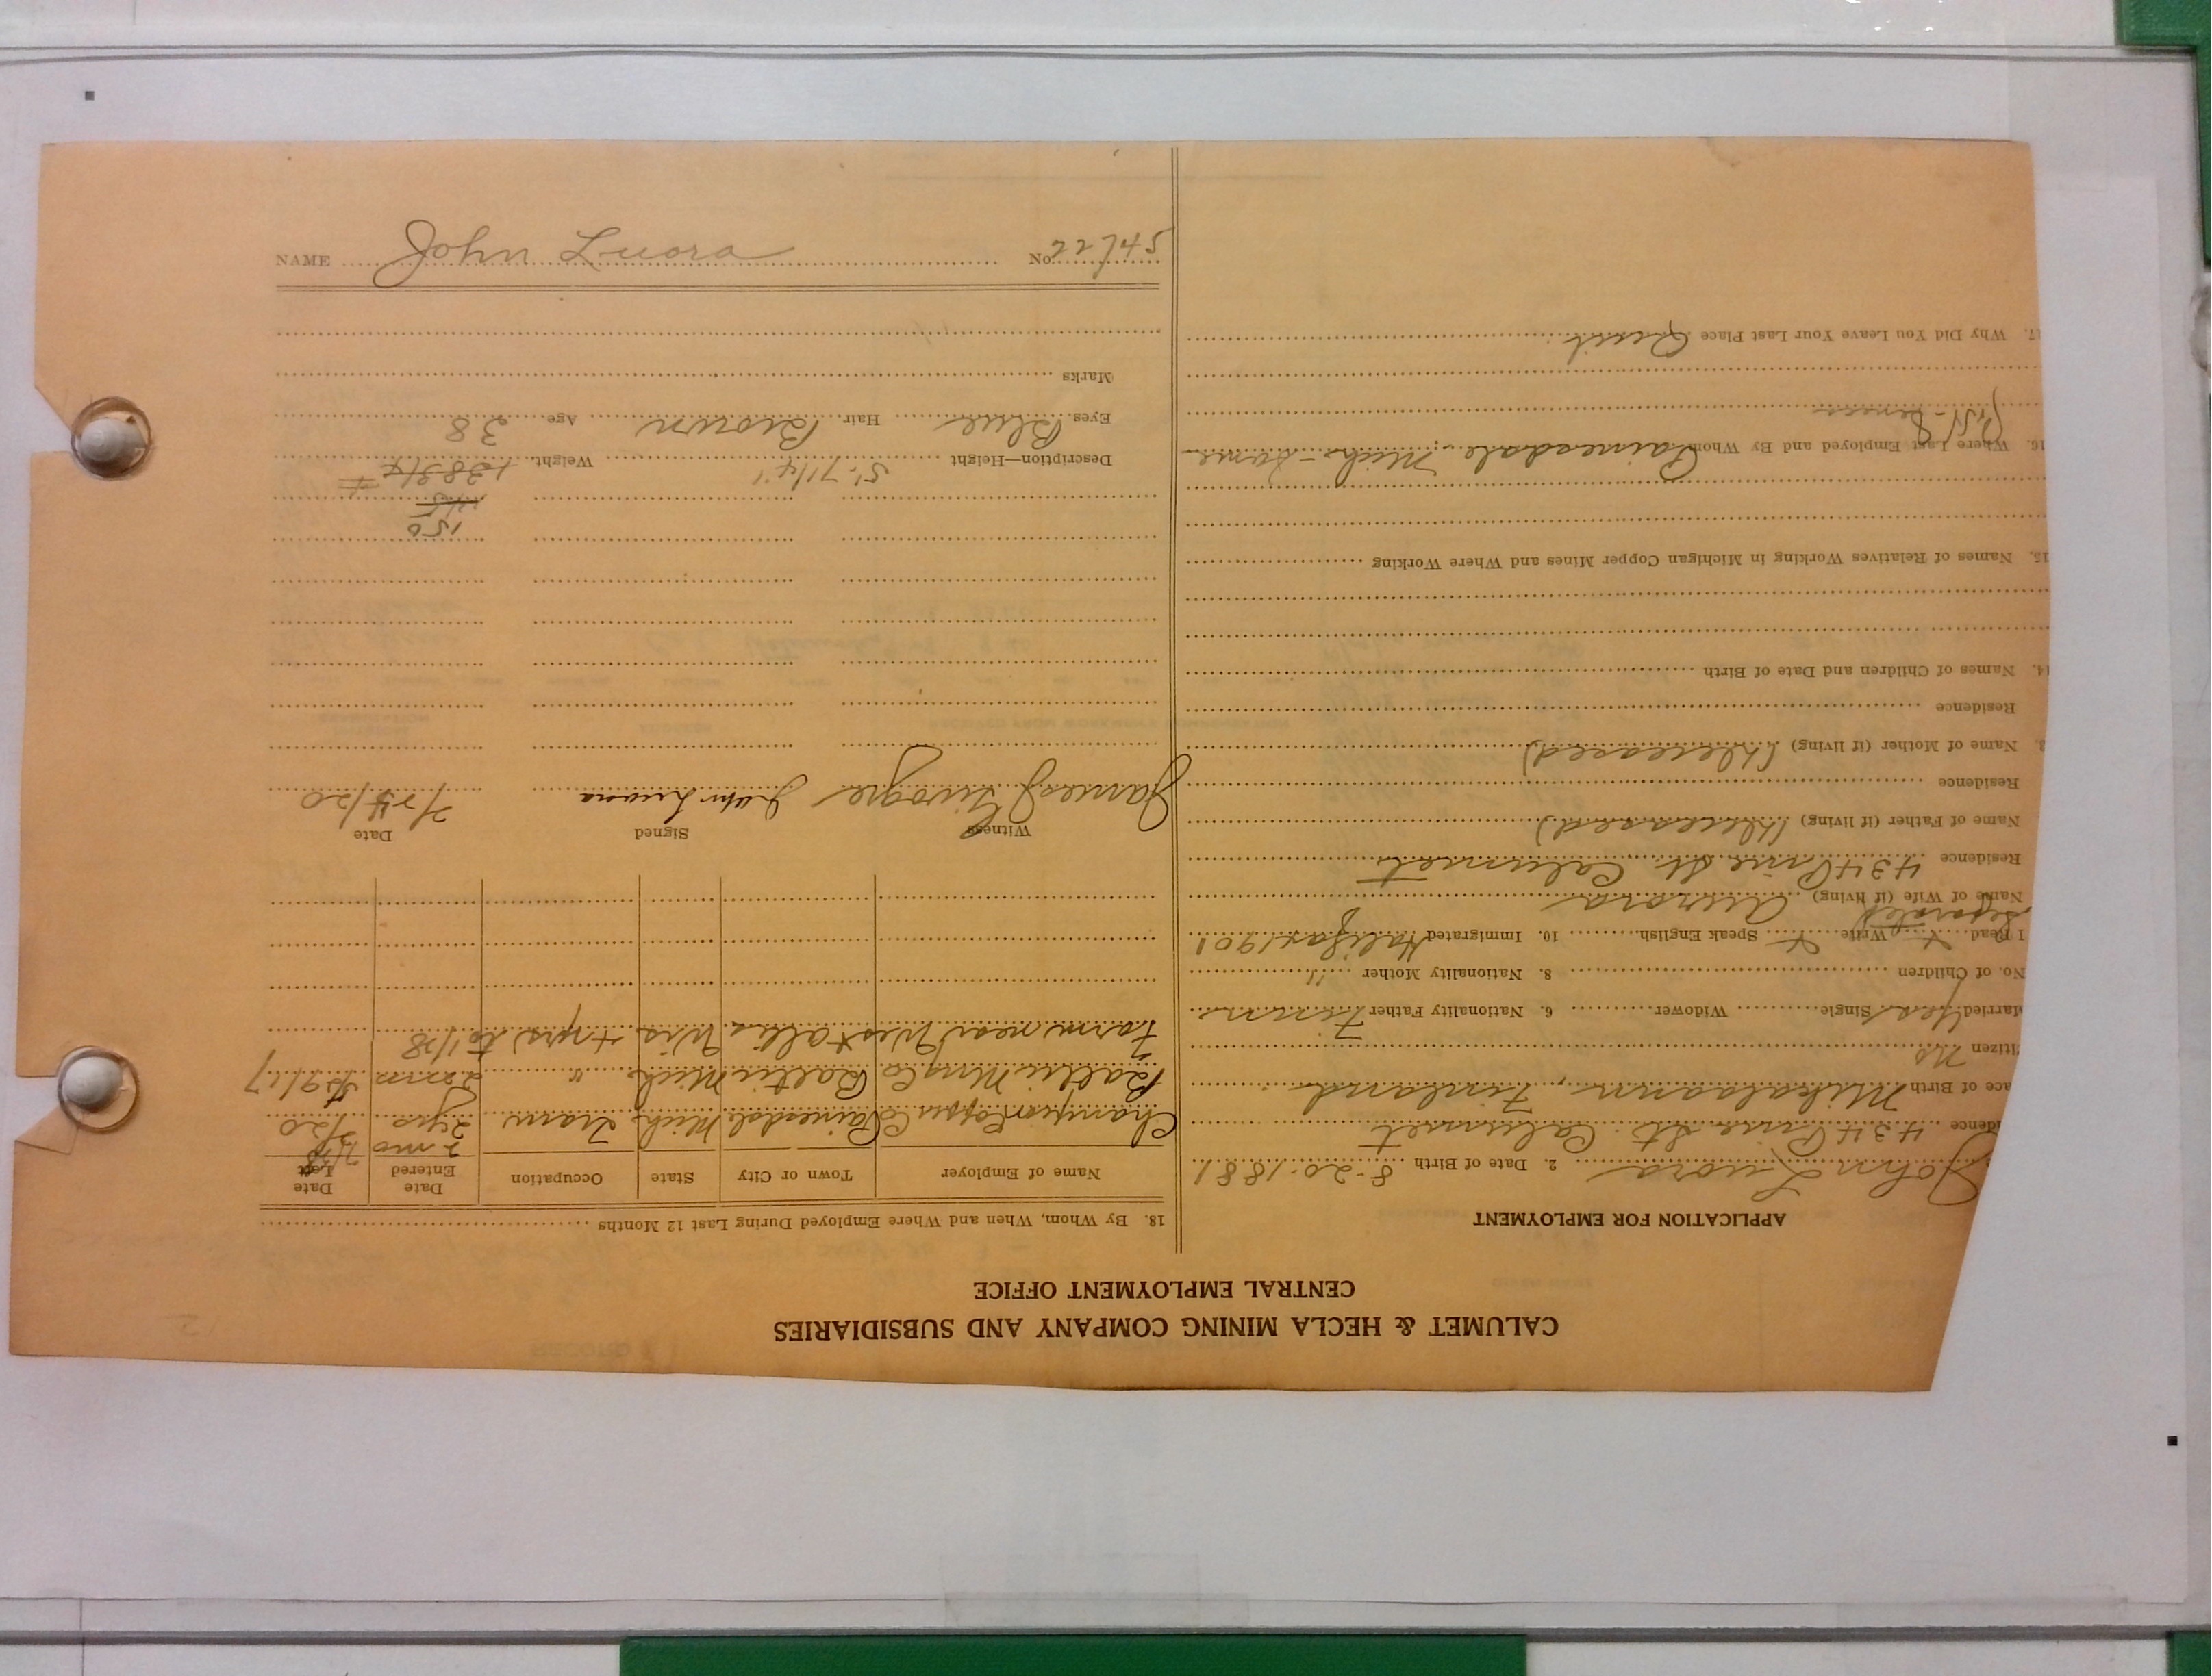 CALUMET & HECLA MINING COMPANY AND SUBSIDIARIES
CENTRAL EMPLOYMENT OFFICE
APPLICATION FOR EMPLOYMENT
John Luora 2. Date of Birth 8-20-1881
idence 434 Pine St. Calumet
ace of Birth Finland
itizen No
Married Yes Single Widower 6. Nationality Father Finn
No. of Children 8. Nationality Mother "
I Read X Write X Speak English 10. Immigrated Halifax 1901
separated
Name of Wife (if living) Aurora
Residence 434 Pine St. Calumet
Name of Father (if living) (Deceased)
Residence
Name of Mother (if living) (Deceased)
Residence
14. Names of Children and Date of Birth
15. Names of Relatives Working in Michigan Copper Mines and Where Working
16. Where Last Employed and By Whom Painesdale, Mich - same
17. Why Did You Leave Your Last Place Quit
18. By Whom, When and Where Employed During Last 12 Months
Name of Employer Town or City State Occupation Date Entered Date Left
Champion Copper Co Painesdale Mich Tram 2 yrs 2 mo 7/20
Baltic Mng Co. Baltic Mich " 2 mo 9/17
Farm near West Allis Wis 4 yrs to 1/18
Witness Signed Date
James J. John Luoma 7/24/20
150
145
Description—Height 5' 7 1/4" Weight 138 3/4 #
Eyes Blue Hair Brown Age 38
Marks
NAME John Luora No. 22745